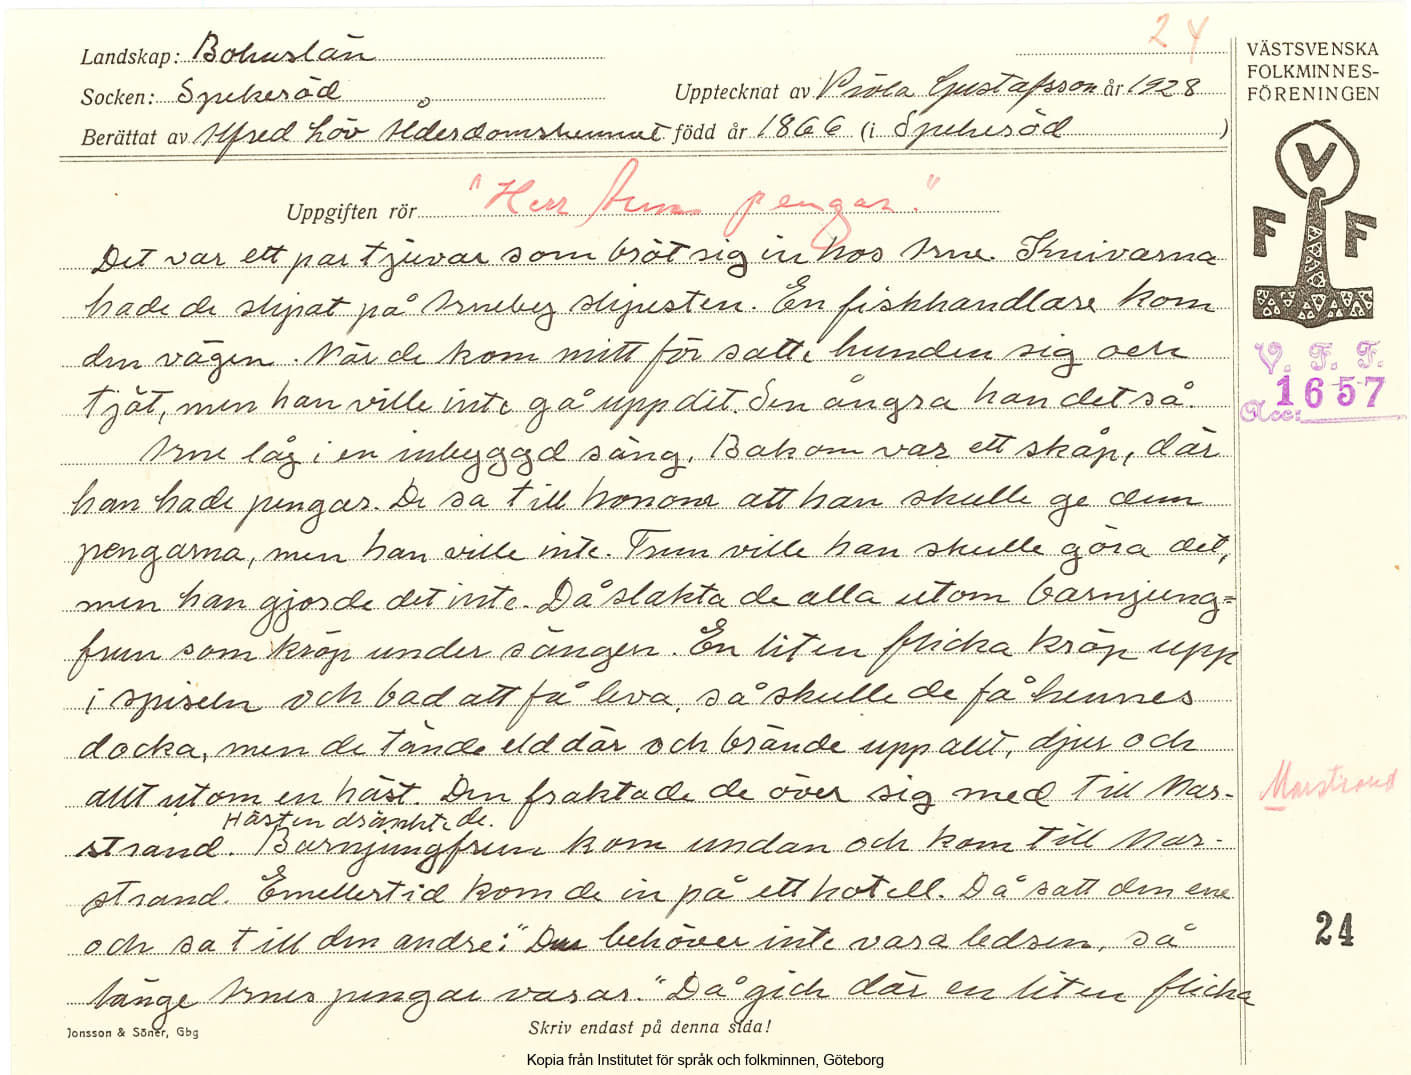 24
Landskap: Bohuslän
Socken: Spekeröd
Upptecknat av Viola Gustafsson år 1928
Berättat av Alfred Löv Ålderdomshemmet född år 1866 (i Spekeröd)
VÄSTSVENSKA
FOLKMINNES-
FÖRENINGEN
V
F F
V. F. F.
1657
Acc:
Uppgiften rör "Herr Arnes pengar."
Det var ett par tjuvar som bröt sig in hos Arne. Knivarna
hade de slipat på Arneberg slipesten. En fiskhandlare kom
den vägen. När de kom mitt för satte hunden sig och
tjöt, men han ville inte gå upp dit. Sen ångra han det så.
Arne låg i en inbyggd säng. Bakom var ett skåp, där
han hade pengar. De sa till honom att han skulle ge dem
pengarna, men han ville inte. Frun ville han skulle göra det,
men han gjorde det inte. Då slakta de alla utom barnjung-
frun som kröp under sängen. En liten flicka kröp upp
i spiseln och bad att få leva, så skulle de få hennes
docka, men de tände eld där och brände upp allt, djur och
allt utom en häst. Den fraktade de över sig med till Mar-
Hästen dränkte de.
strand. Barnjungfrun kom undan och kom till Mar-
strand. Emellertid kom de in på ett hotell. Då satt den ene
och sa till den andre: "Du behöver inte vara ledsen, så
länge Arnes pengar varar." Då gick där en liten flicka
Marstrand
24
Jonsson & Söner, Gbg
Skriv endast på denna sida!
Kopia från Institutet för språk och folkminnen, Göteborg